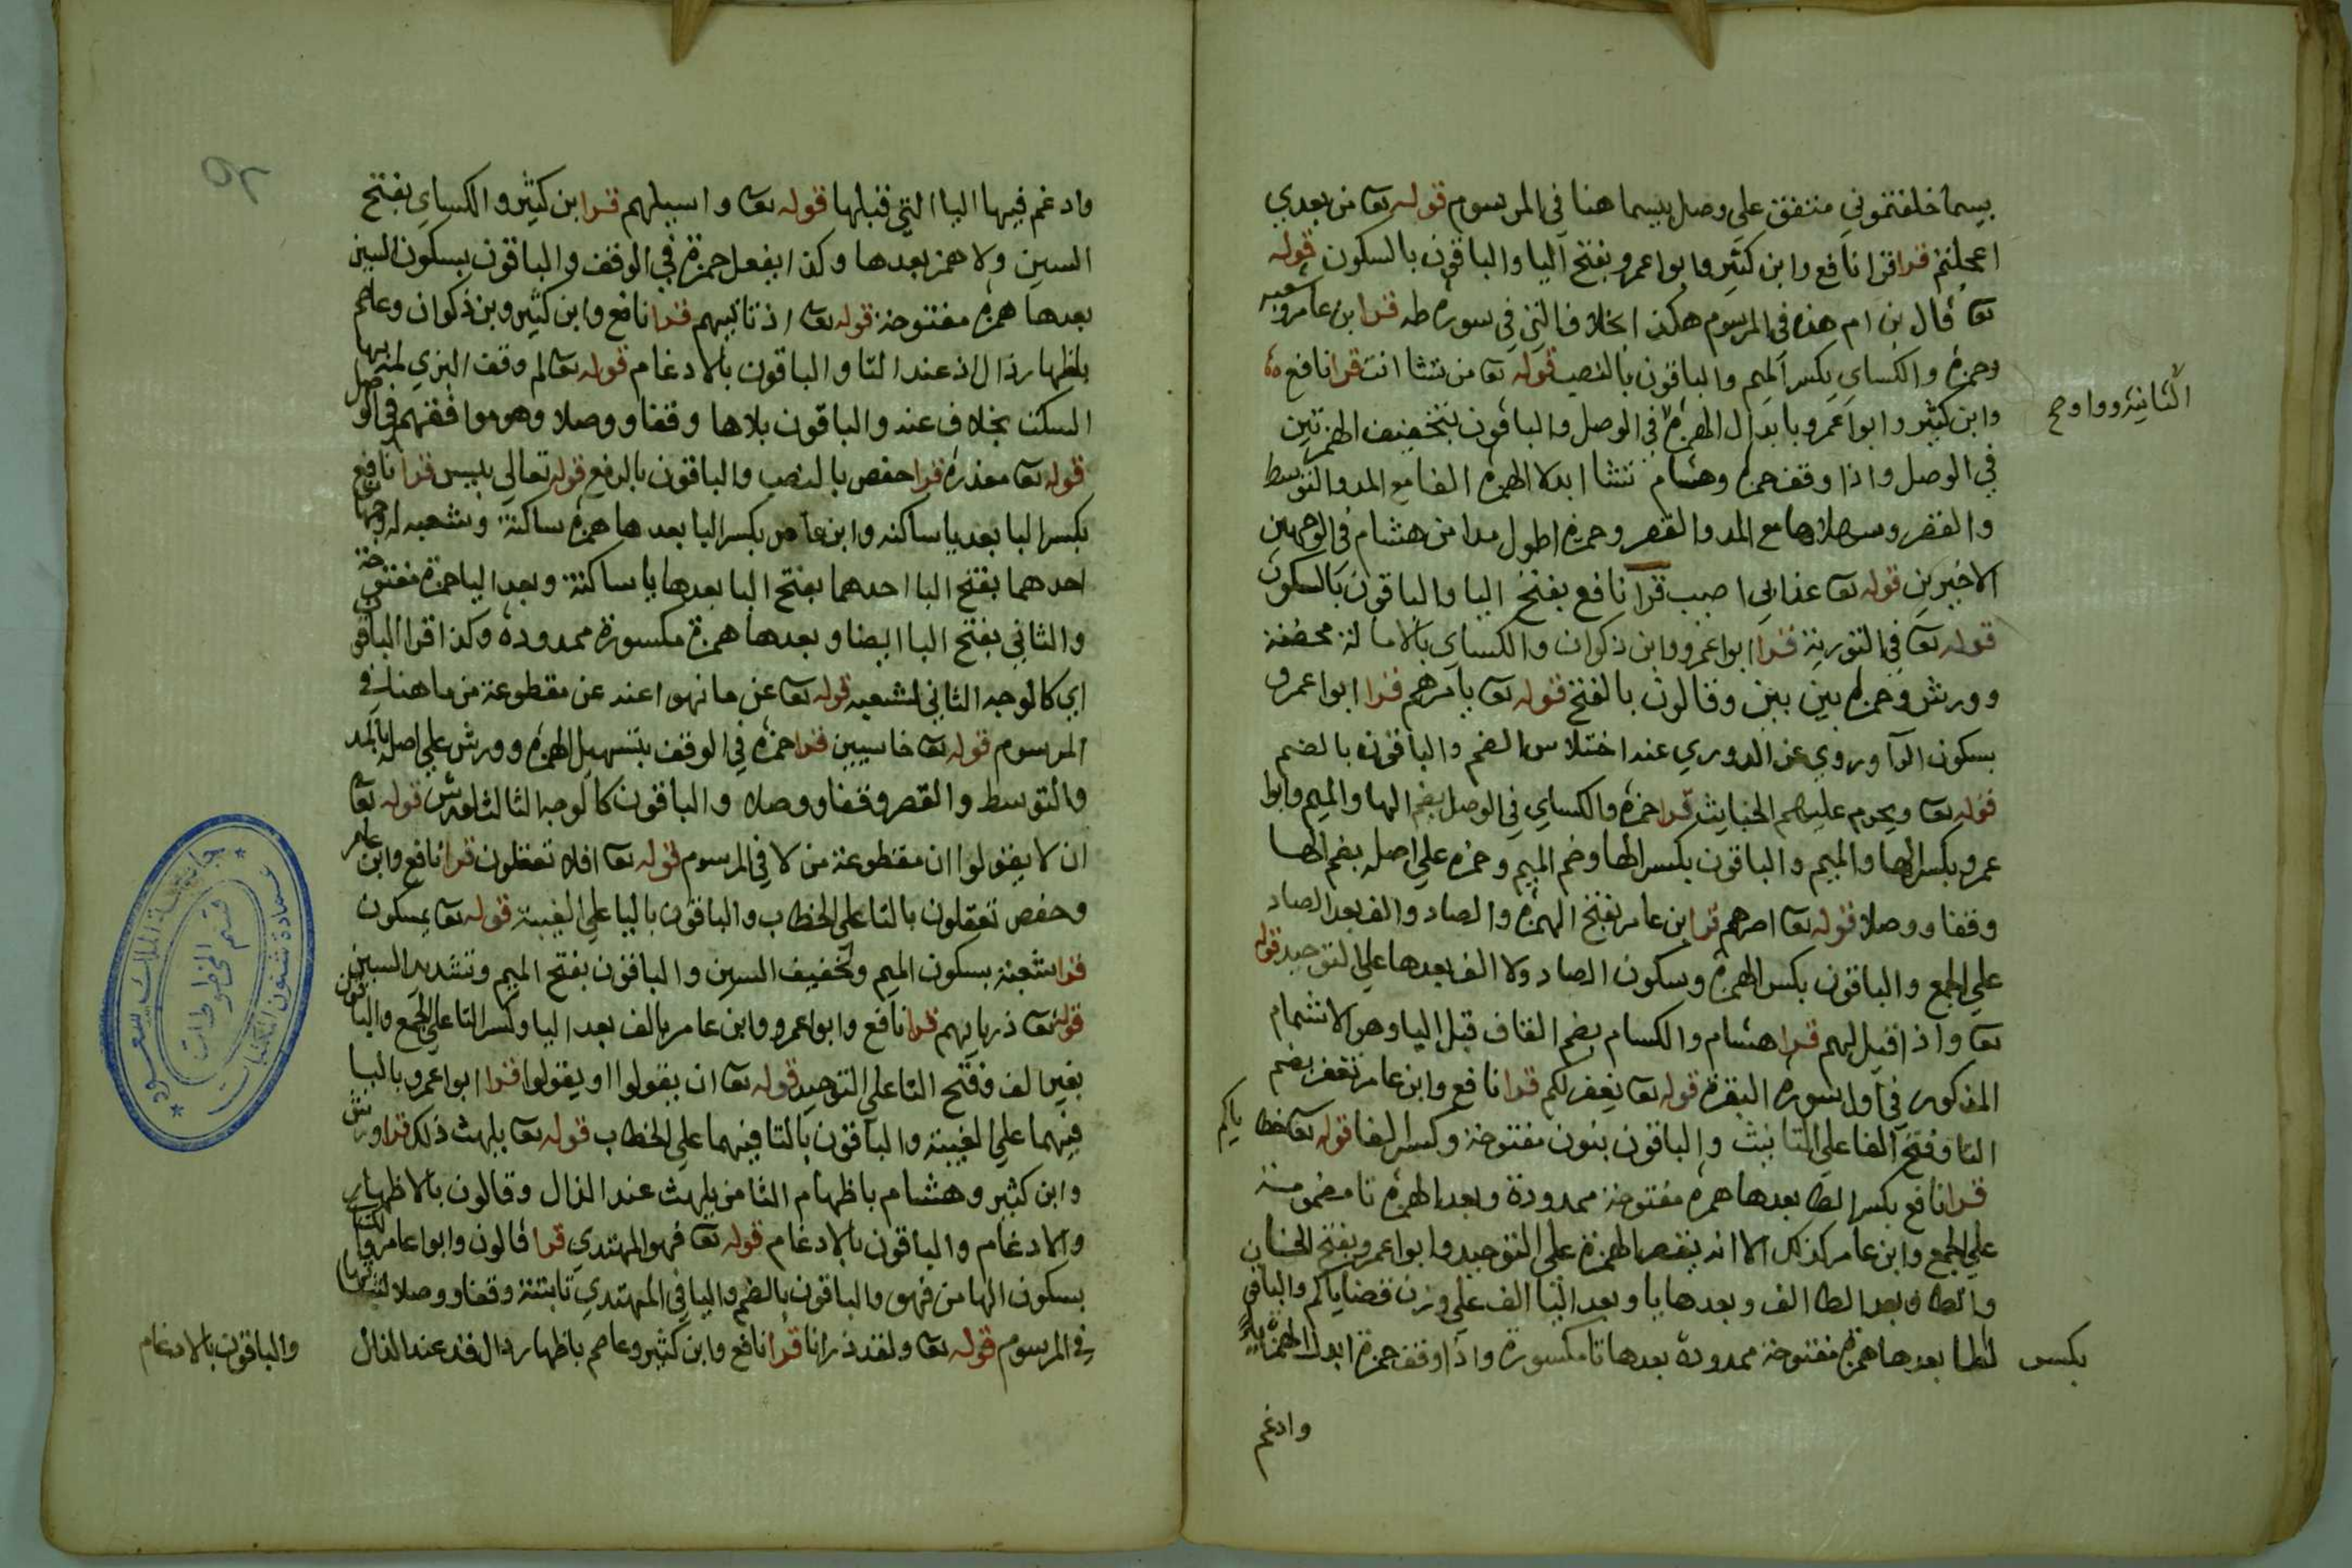 بيسما خلفتموني متفق على وصل بيسما هنا في المرسوم قوله تعا من بعدي
اعجلتم قرا قرا نافع وابن كثير وابوا عمرو بفتح اليا والباقون بالسكون قوله
تعا قال بن ام هذه في المرسوم هكذا بخلاف التي في سورة طه قرا ابن عامر وشعبه
وحمزة والكساي بكسر الميم والباقون بالنصب قوله تعا من تشا انت قرا نافع
وابن كثير وابوا عمرو بابدال الهمزة في الوصل والباقون بتخفيف الهمزتين
الثانية واوا وصح
في الوصل واذا وقف حمزة وهشام تشا ابدلا الهمزة الفا مع المد والتوسط
والقصر وسهلاها مع المد والقصر وحمزة اطول مدا من هشام في الوجهين
الاخيرين قوله تعا عذابي اصيب قرا نافع بفتح اليا والباقون بالسكون
قوله تعا في التورية قرا ابوا عمرو وابن ذكوان والكساي بالامالة محضة
وورش وحمزة بين بين وقالون بالفتح قوله تعا يامرهم قرا ابوا عمرو
بسكون الرا وروي عن الدوري عنه اختلاس الضم والباقون بالضم
قوله تعا ويحرم عليهم الخبايث قرا حمزة والكساي في الوصل بضم الها والميم وابوا
عمرو بكسر الها والميم والباقون بكسر الها وضم الميم وحمزه علي اصله بضم الها
وقفا ووصلا قوله تعا اصرهم قرا ابن عامر بفتح الهمزة والصاد والف بعد الصاد
علي الجمع والباقون بكسر الهمزة وسكون الصاد ولا الف بعدها علي التوحيد قوله
تعا واذا قيل لهم قرا هشام والكسام بضم القاف قبل اليا وهو الاشمام
المذكور في اول سورة البقرة قوله تعا يغفر لكم قرا نافع وابن عامر تغفر بضم
التا وفتح الفا على التانيث والباقون بنون مفتوحة وكسر الفا قوله تعا خطاياكم
قرا نافع بكسر الطا بعدها همزة مفتوحة ممدودة وبعد الهمزة تا مضمومة
علي الجمع وابن عامر كذلك الا انه يقصر الهمزة على التوحيد وابوا عمرو بفتح الخا
والطا وبعد الطا الف وبعدها يا وبعد اليا الف علي وزن قضاياكم والباقون
بكسر الطا بعدها همزة مفتوحة ممدودة بعدها تا مكسورة واذا وقف حمزة ابدل الهمزة يا
وادغم
وادغم فيها اليا التي قبلها قوله تعا واسيلهم قرا ابن كثير والكساي بفتح
السين ولا همز بعدها وكذا يفعل حمزة في الوقف والباقون بسكون السين
بعدها همزة مفتوحة قوله تعا اذ تاتيهم قرا نافع وابن كثير وبن ذكوان وعاصم
بإظهار ذال اذ عند التا والباقون بالادغام قوله تعا لم وقف البزي لمه بها
السكت بخلاف عنه والباقون بلاها وقفا ووصلا وهو موافقهم في الوصل
قوله تعا معذرة قرا حفص بالنصب والباقون بالرفع قوله تعالي بييس قرا نافع
بكسر البا بعد يا ساكنه وابن عامر بكسر البا بعدها همزة ساكنة وشعبه له وجهان
احدهما بفتح البا احدهما بفتح البا بعدها يا ساكنة وبعد اليا همزة مفتوحة
والثاني بفتح البا ايضا وبعدها همزة مكسورة ممدودة وكذا قرا الباقون
اي كالوجه الثاني لشعبه قوله تعا عن ما نهوا عنه عن مقطوعة من ما هنا في
المرسوم قوله تعا خاسيين قرا حمزة في الوقف بتسهيل الهمزة وورش علي اصله بالمد
والتوسط والقصر وقفا ووصلا والباقون كالوجه الثالث لورش قوله تعا
ان لا يقولوا ان مقطوعة من لا في المرسوم قوله تعا افلا تعقلون قرا نافع وابن عامر
وحفص تعقلون بالتا على الخطاب والباقون باليا علي الغيبة قوله تعا يمسكون
قرا شعبة بسكون الميم وتخفيف السين والباقون بفتح الميم وتشديد السين
قوله تعا ذرياتهم قرا نافع وابوا عمرو وابن عامر بالف بعد اليا وكسر التا علي الجمع والباقون
بغير الف وفتح التا علي التوحيد قوله تعا ان يقولوا او يقولوا قرا ابوا عمرو باليا
فيهما علي الغيبة والباقون بالتا فيهما علي الخطاب قوله تعا يلهث ذلك قرا ورش
وابن كثير وهشام باظهام الثا من يلهث عند الذال وقالون بالاظهار
والادغام والباقون بالادغام قوله تعا فهو المهتدي قرا قالون وابوا عامر والكساي
بسكون الها من فهو والباقون بالضم واليا في المهتدي ثابتة وقفا ووصلا لثباتها
في المرسوم قوله تعا ولقد ذرانا قرا نافع وابن كثير وعاصم باظهار دال قد عند الذال
والباقون بالادغام
جامعة الملك سعود
عمادة شئون المكتبات
قسم المخطوطات